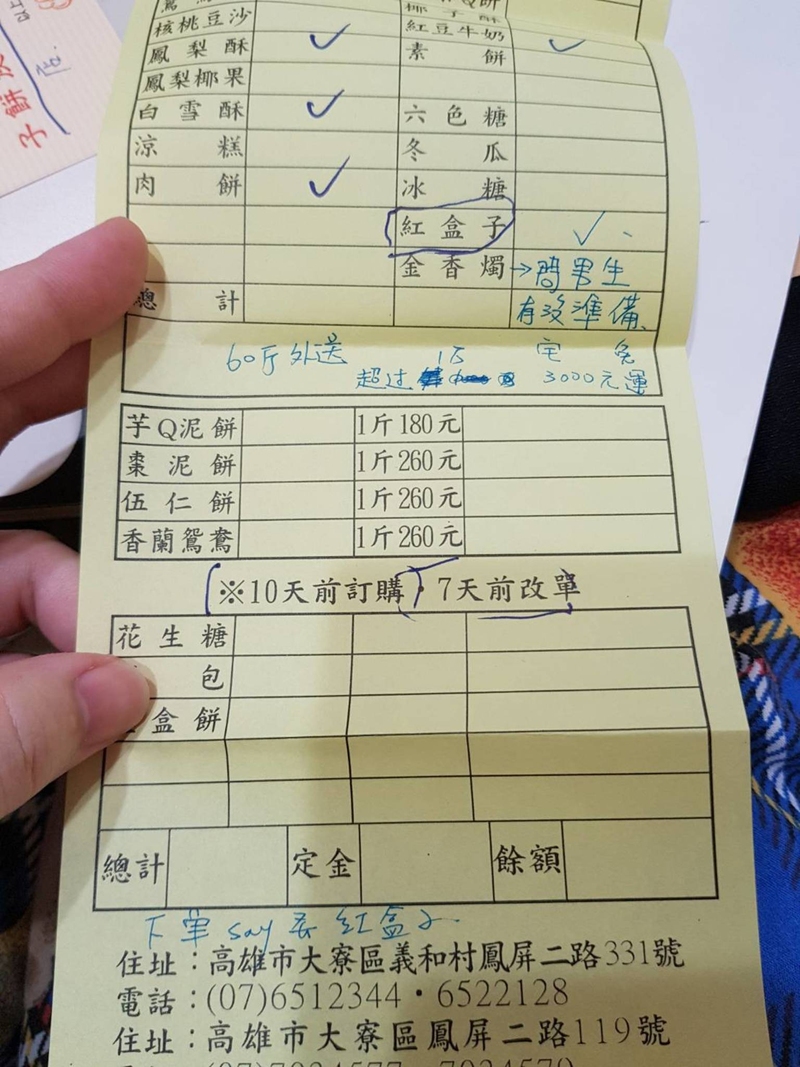 核桃豆沙
鳳梨酥 ✓
鳳梨椰果
白雪酥 ✓
涼糕
肉餅 ✓
總計
Q餅
椰子酥
紅豆牛奶 ✓
素餅
六色糖
冬瓜
冰糖
紅盒子 ✓
金香燭 →問男生
有沒準備
60斤外送
超过 1万 宅免
3000元運
芋Q泥餅 1斤180元
棗泥餅 1斤260元
伍仁餅 1斤260元
香蘭鴛鴦 1斤260元
※10天前訂購·7天前改單
花生糖
包
盒餅
總計 定金 餘額
下單 say 要紅盒子
住址：高雄市大寮區義和村鳳屏二路331號
電話：(07)6512344·6522128
住址：高雄市大寮區鳳屏二路119號
子餅